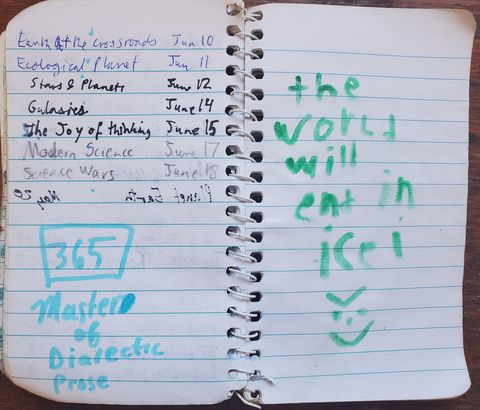 Earth at the crossroads Jun 10
Ecological Planet Jun 11
Stars & Planets June 12
Galaxies June 14
The Joy of thinking June 15
Modern Science June 17
Science Wars June 18
Planet Earth May 20
365
Master
of
Dialectic
Prose
the
world
will
ent in
ice!